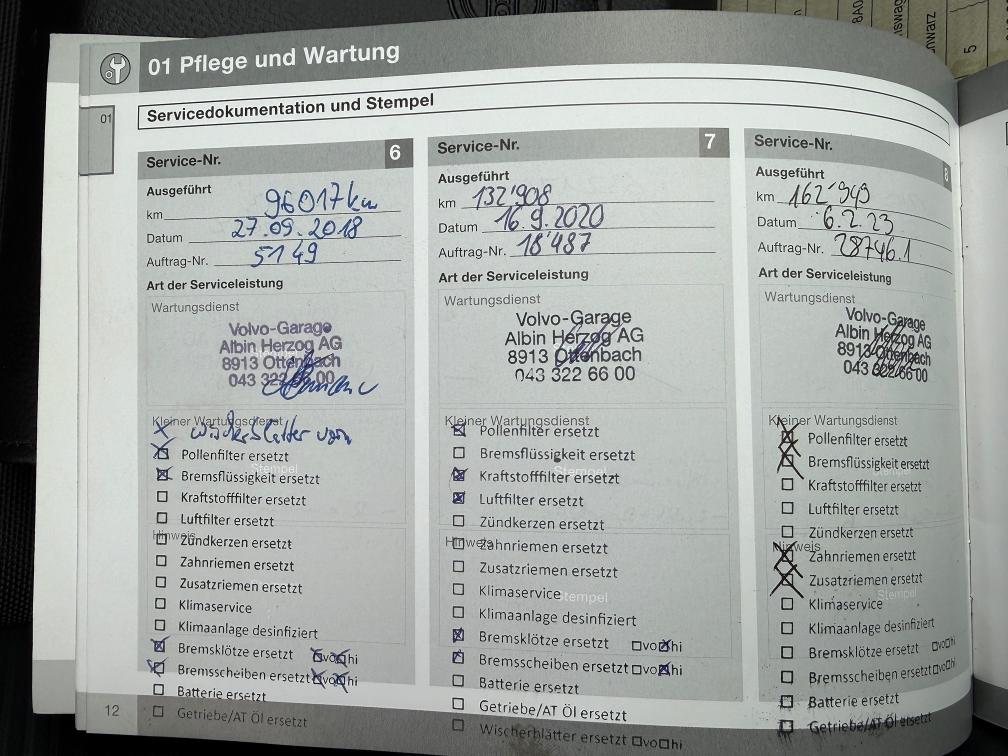 01 Pflege und Wartung
01
Servicedokumentation und Stempel
Service-Nr. 6
Ausgeführt
km 96017 km
Datum 27.09.2018
Auftrag-Nr. 5149
Art der Serviceleistung
Wartungsdienst
Volvo-Garage
Albin Herzog AG
8913 Ottenbach
043 322 66 00
Kleiner Wartungsdienst
x Wischerblätter vorn
Stempel
☒ Pollenfilter ersetzt
☒ Bremsflüssigkeit ersetzt
☐ Kraftstofffilter ersetzt
☐ Luftfilter ersetzt
Hinweis
☐ Zündkerzen ersetzt
☐ Zahnriemen ersetzt
☐ Zusatzriemen ersetzt
☐ Klimaservice
☐ Klimaanlage desinfiziert
☒ Bremsklötze ersetzt ☒vo☒hi
☒ Bremsscheiben ersetzt ☒vo☒hi
☐ Batterie ersetzt
☐ Getriebe/AT Öl ersetzt
12
Service-Nr. 7
Ausgeführt
km 132'908
Datum 16.9.2020
Auftrag-Nr. 18'487
Art der Serviceleistung
Wartungsdienst
Volvo-Garage
Albin Herzog AG
8913 Ottenbach
043 322 66 00
Kleiner Wartungsdienst
☒ Pollenfilter ersetzt
☐ Bremsflüssigkeit ersetzt
Stempel
☒ Kraftstofffilter ersetzt
☒ Luftfilter ersetzt
☐ Zündkerzen ersetzt
Hinweis
☐ Zahnriemen ersetzt
☐ Zusatzriemen ersetzt
☐ Klimaservice
Stempel
☐ Klimaanlage desinfiziert
☒ Bremsklötze ersetzt ☐vo☒hi
☒ Bremsscheiben ersetzt ☐vo☒hi
☐ Batterie ersetzt
☐ Getriebe/AT Öl ersetzt
☐ Wischerblätter ersetzt ☐vo☐hi
Service-Nr. 8
Ausgeführt
km 162'949
Datum 6.2.23
Auftrag-Nr. 28746.1
Art der Serviceleistung
Wartungsdienst
Volvo-Garage
Albin Herzog AG
8913 Ottenbach
043 322 66 00
Kleiner Wartungsdienst
☒ Pollenfilter ersetzt
☒ Bremsflüssigkeit ersetzt
☐ Kraftstofffilter ersetzt
☐ Luftfilter ersetzt
☐ Zündkerzen ersetzt
Hinweis
☒ Zahnriemen ersetzt
☒ Zusatzriemen ersetzt
Stempel
☐ Klimaservice
☐ Klimaanlage desinfiziert
☐ Bremsklötze ersetzt ☐vo☐hi
☐ Bremsscheiben ersetzt ☐vo☐hi
☐ Batterie ersetzt
☐ Getriebe/AT Öl ersetzt
5